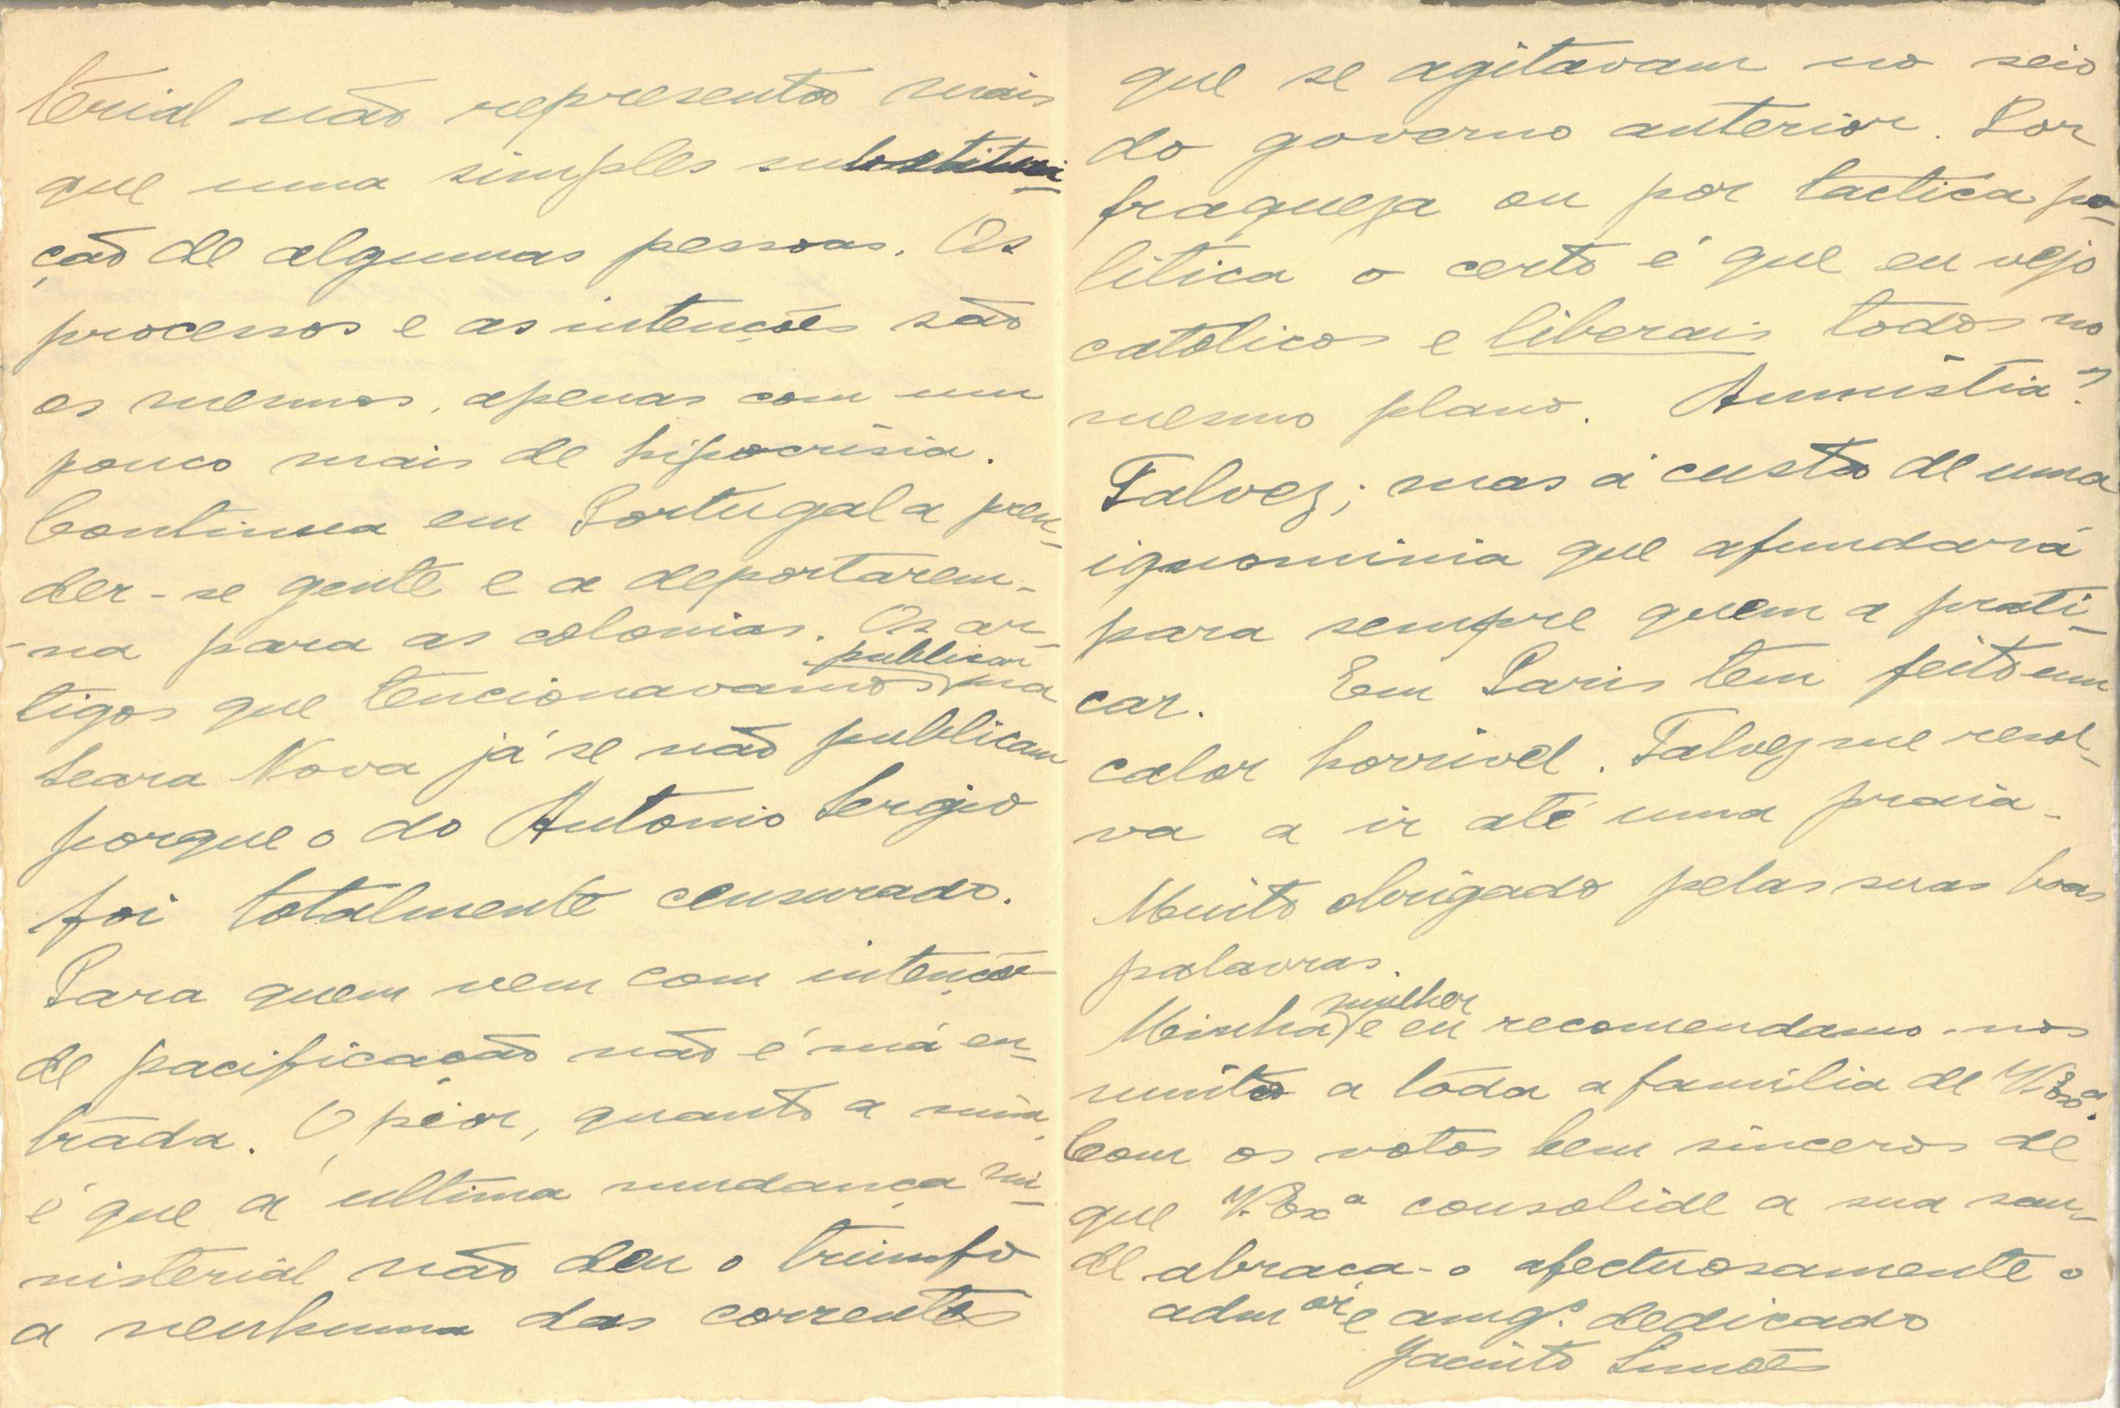 terial não representa mais
que uma simples substitui-
ção de algumas pessoas. Os
processos e as intenções são
os mesmos, apenas com um
pouco mais de hipocrisia.
Continua em Portugal a pren-
der-se gente e a deportarem-
-na para as colonias. Os ar-
tigos que tencionavamos publicar na
Seara Nova já se não publicam
porque o do Antonio Sergio
foi totalmente censurado.
Para quem vem com intenção
de pacificação não é má en-
trada. O peor, quanto a mim,
é que a ultima mudança mi-
nisterial não deu o triumfo
a nenhuma das correntes
que se agitavam no seio
do governo anterior. Por
fraqueza ou por tactica po-
litica o certo é que eu vejo
catolicos e liberais todos no
mesmo plano. Amnistia?
Talvez; mas á custa de uma
ignominia que afundará
para sempre quem a prati-
car. Em Paris tem feito um
calor horrivel. Talvez me resol-
va a ir até uma praia.
Muito obrigado pelas suas boas
palavras.
Minha mulher e eu recomendamo-nos
muito a toda a familia de V. Exª.
Com os votos bem sinceros de
que V. Exª consolide a sua sau-
de abraça-o afectuosamente o
admor e amgº. dedicado
Jacinto Simões